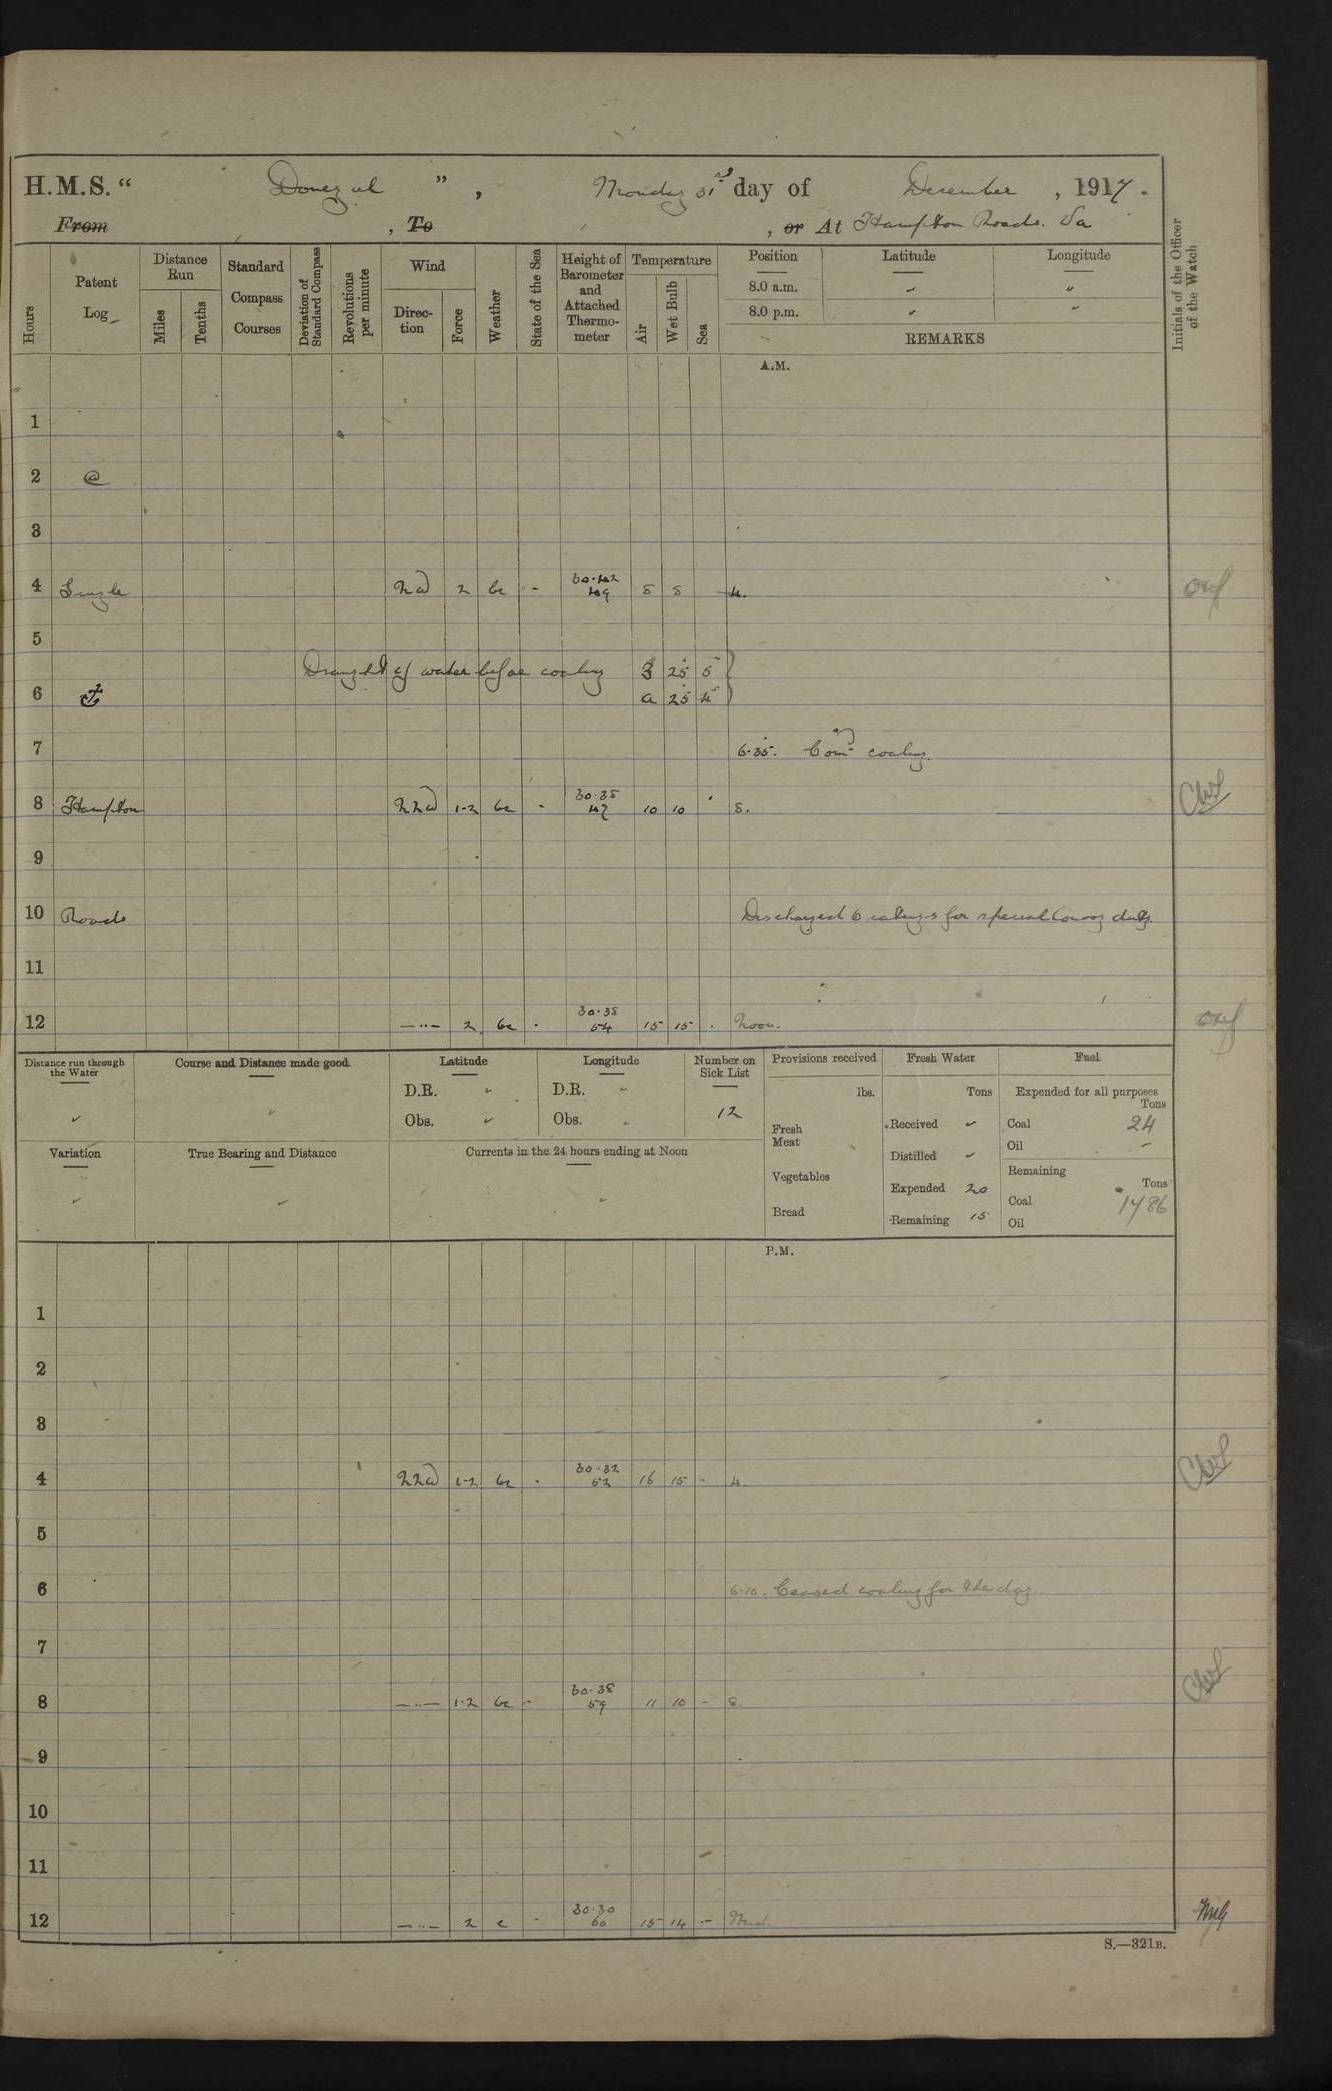 H.M.S. “ Donegal ” , Monday 31st day of December , 1917.
From , To , or At Hampton Roads. Va
Hours
Patent Log
Distance Run
Miles
Tenths
Standard Compass Courses
Deviation of Standard Compass
Revolutions per minute
Wind
Direction
Force
Weather
State of the Sea
Height of Barometer and Attached Thermometer
Temperature
Air
Wet Bulb
Sea
Position Latitude Longitude
8.0 a.m. " "
8.0 p.m. " "
REMARKS
Initials of the Officer of the Watch
A.M.
1
2 @
3
4 Single NW 2 bc - 8 8 4.
5
Draught of water before coaling F 25 5
6 ⚓ A 25 4
7 6.35. Comd coaling.
8 Hampton NNW 1-2 bc - 30.35 47 10 10 8.
9
10 Roads Discharged 6 ratings for special convoy duty.
11
12 —"— 2 bc - 30.38 54 15 15 . Noon.
Distance run through the Water
Course and Distance made good
Latitude
D.R. "
Obs. "
Longitude
D.R. "
Obs.
Number on Sick List
12
Provisions received
lbs.
Fresh Meat
Vegetables
Bread
Fresh Water
Tons
Received
Distilled
Expended 20
Remaining 15
Fuel
Expended for all purposes
Tons
Coal 24
Oil -
Remaining
Tons
Coal 1486
Oil
Variation
True Bearing and Distance
Currents in the 24 hours ending at Noon
P.M.
1
2
3
4 NNW 1-2 bc - 30.32 52 16 15 - 4
5
6 6.10. Ceased coaling for the day.
7
8 —"— 1-2 bc - 30.38 59 11 10 - 8
9
10
11
12 —"— 2 c - 30.30 60 15 14 - Mid.
S.—321B.